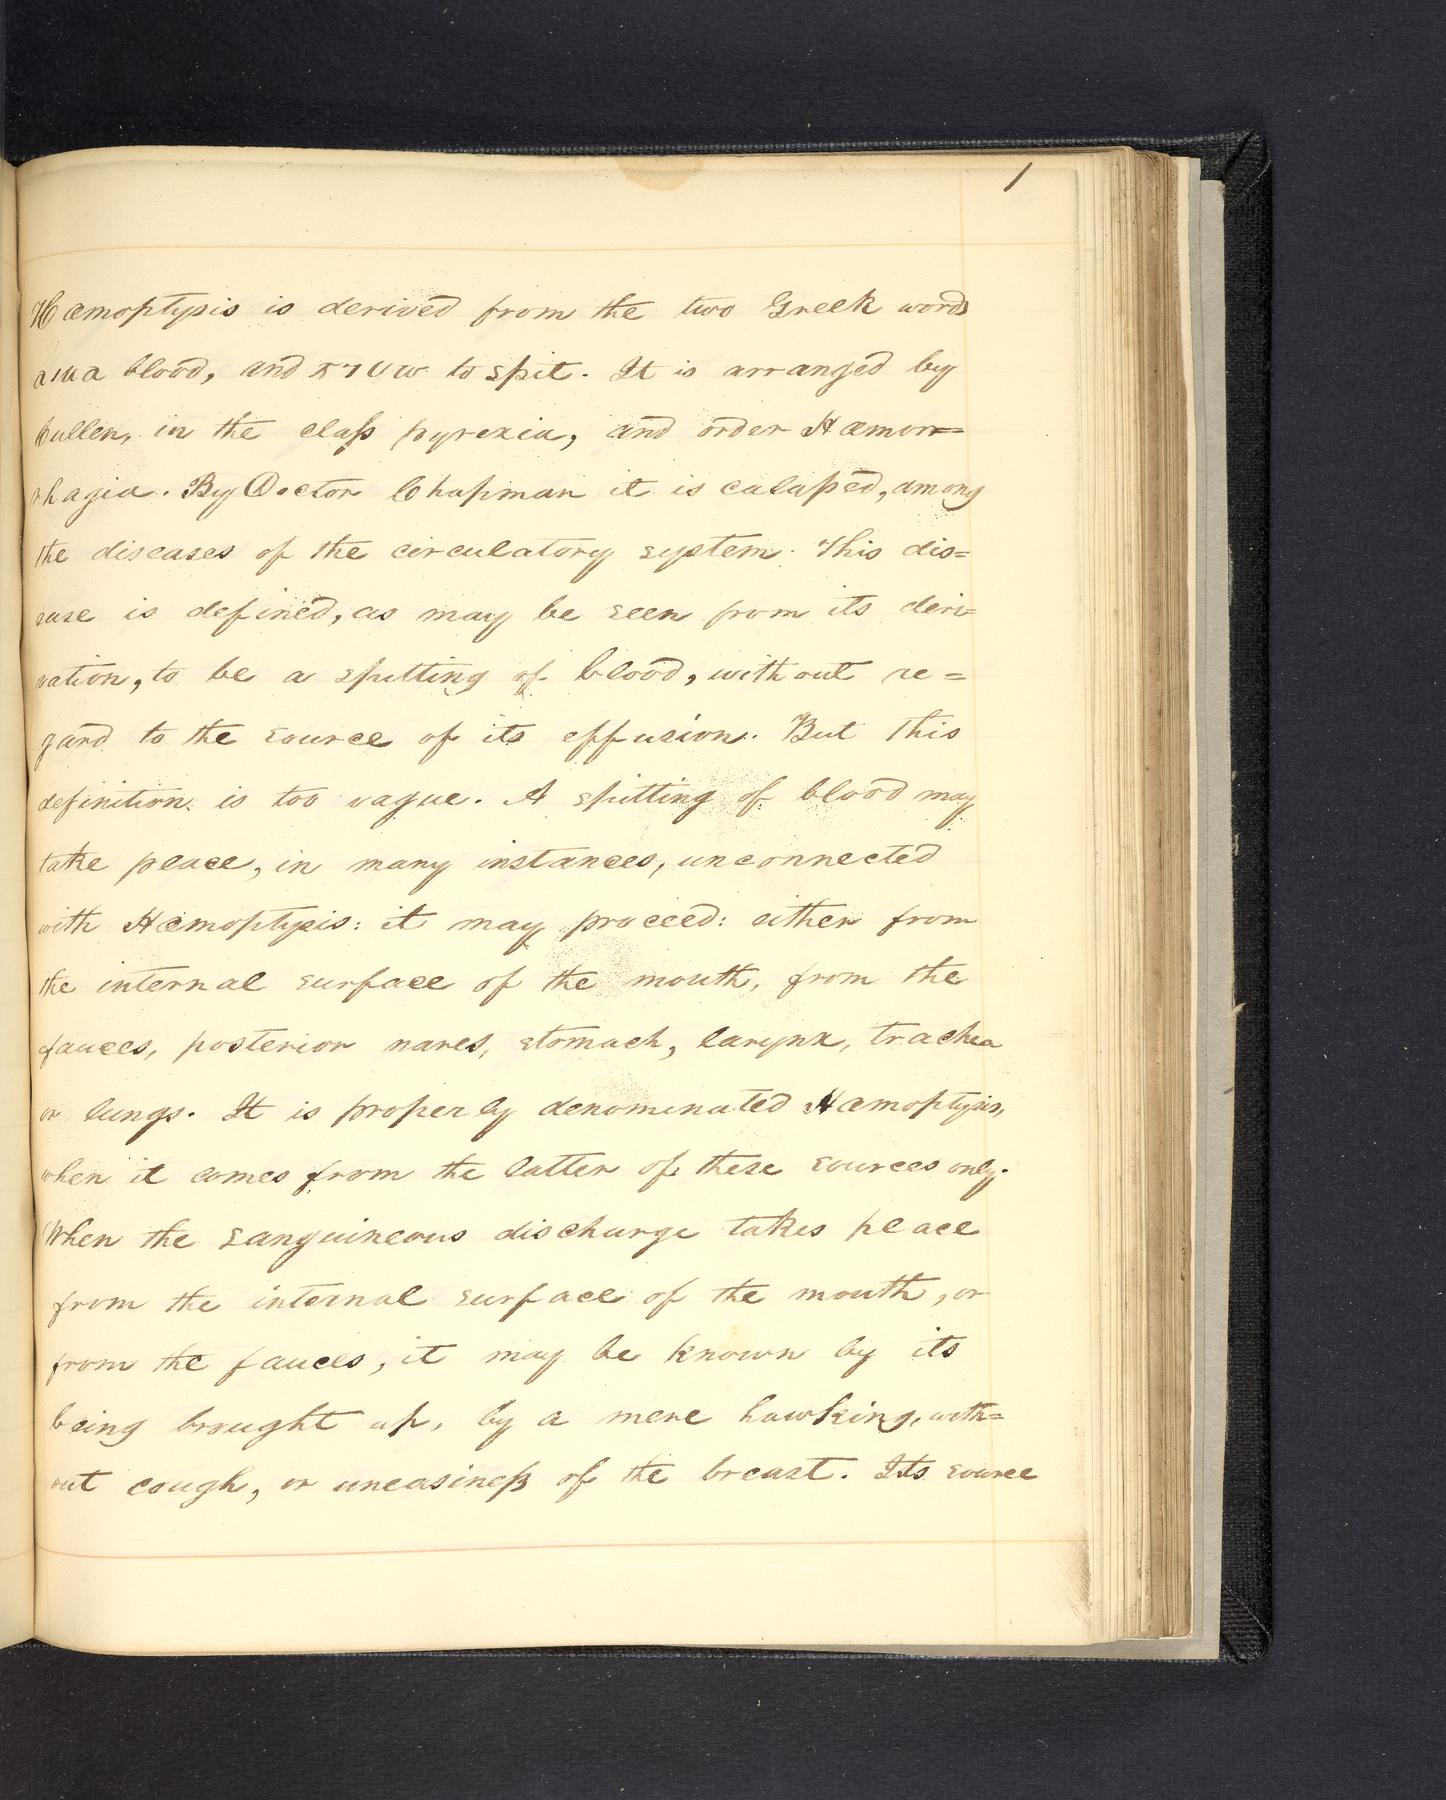 1
Hæmoptysis is derived from the two Greek words
αιμα blood, and πτυω to spit. It is arranged by
Cullen, in the class pyrexia, and order Hæmorr=
rhagia. By Doctor Chapman it is calassed, among
the diseases of the circulatory system. This dis=
ease is defined, as may be seen from its deri=
vation, to be a spitting of blood, without re=
gard to the source of its effusion. But this
definition is too vague. A spitting of blood may
take place, in many instances, unconnected
with Hæmoptysis: it may proceed: either from
the internal surface of the mouth, from the
fauces, posterior nares, stomach, larynx, trachea
or lungs. It is properly denominated Hæmoptysis,
when it comes from the latter of these sources only.
When the sanguineous discharge takes place
from the internal surface of the mouth, or
from the fauces, it may be known by its
being brought up, by a mere hawking, with=
out cough, or uneasiness of the breast. Its source